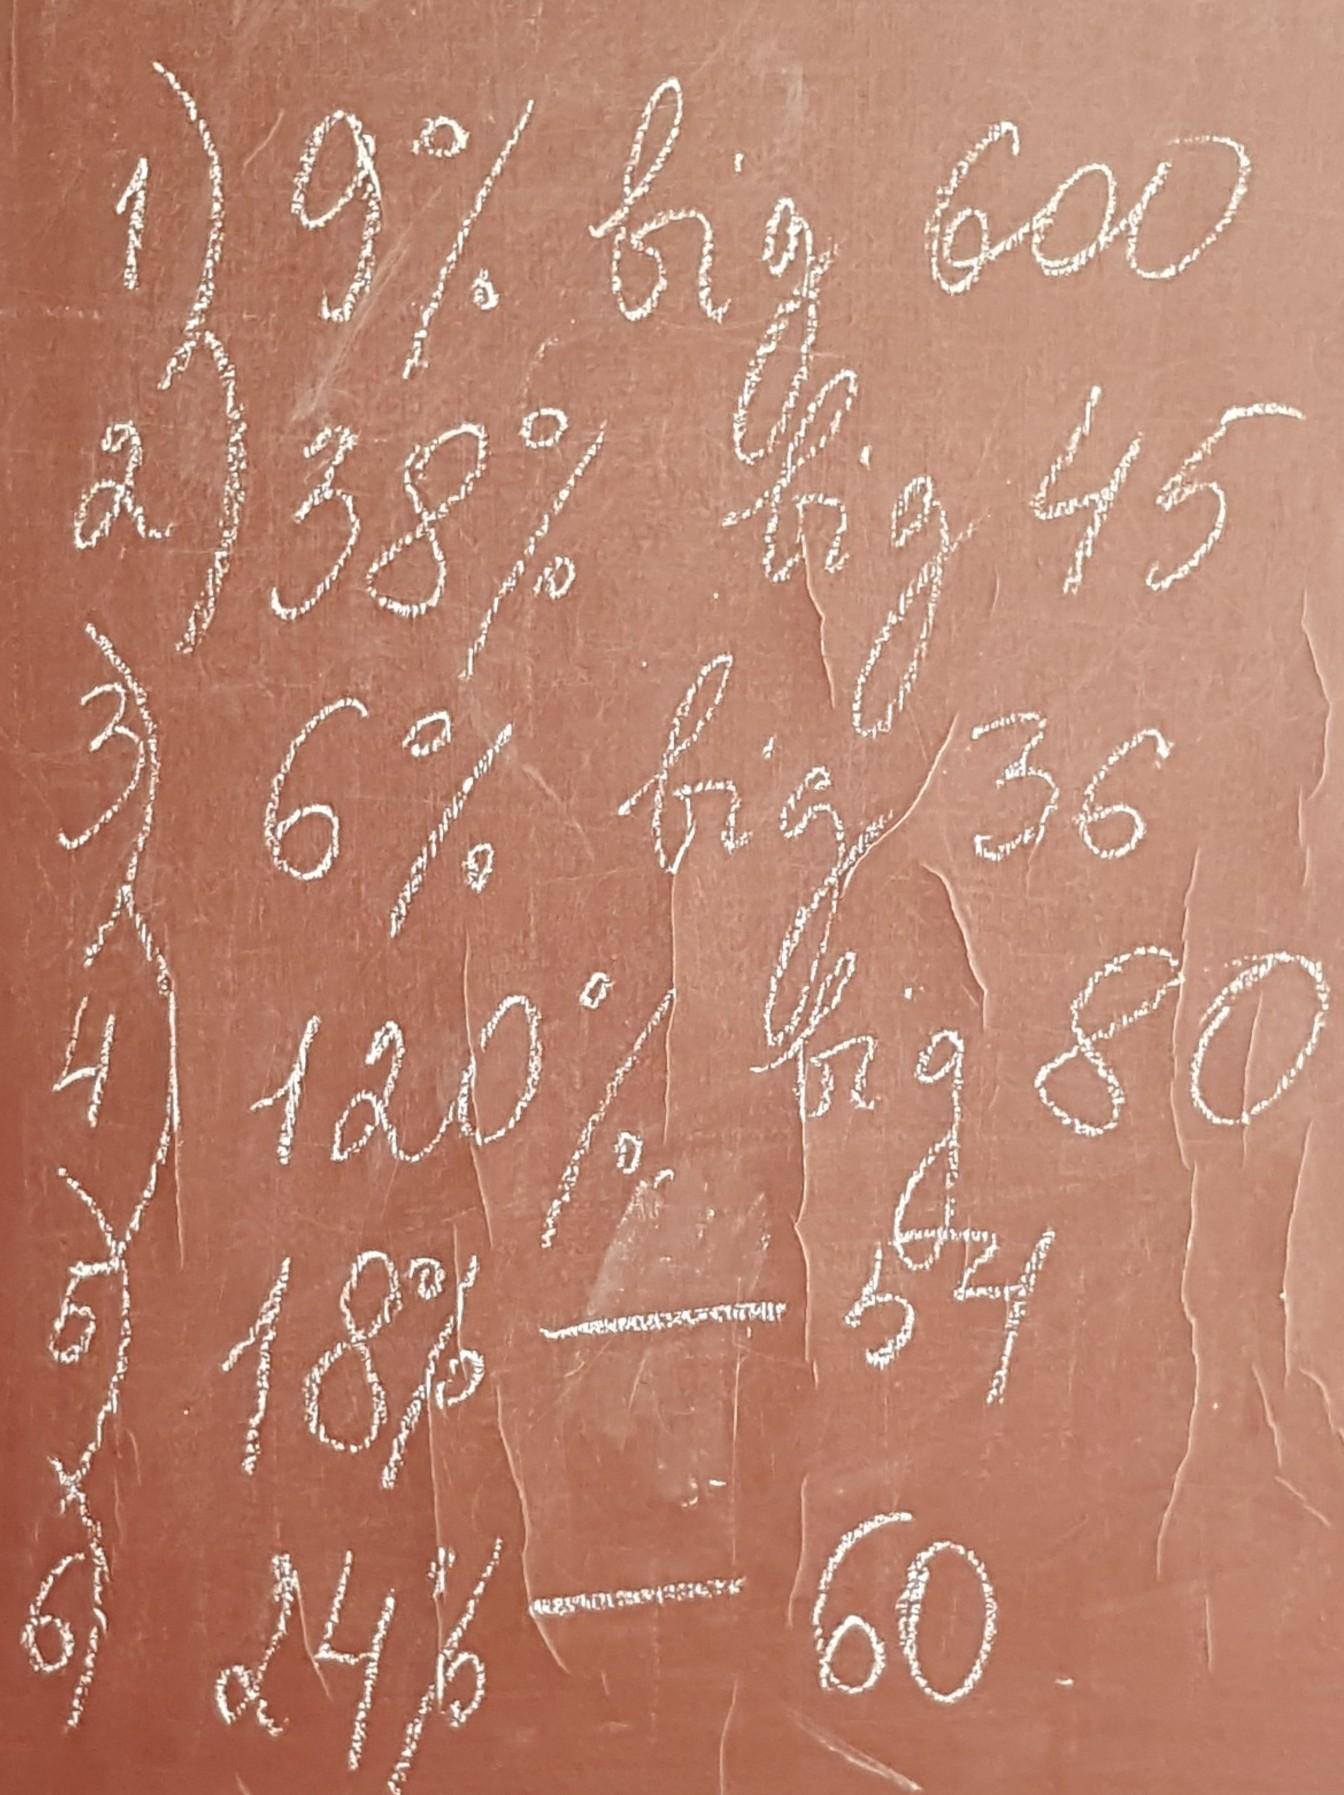 1) 9% від 600
2) 38% від 45
3) 6% від 36
4) 120% від 80
5) 18% — 54
6) 24% — 60